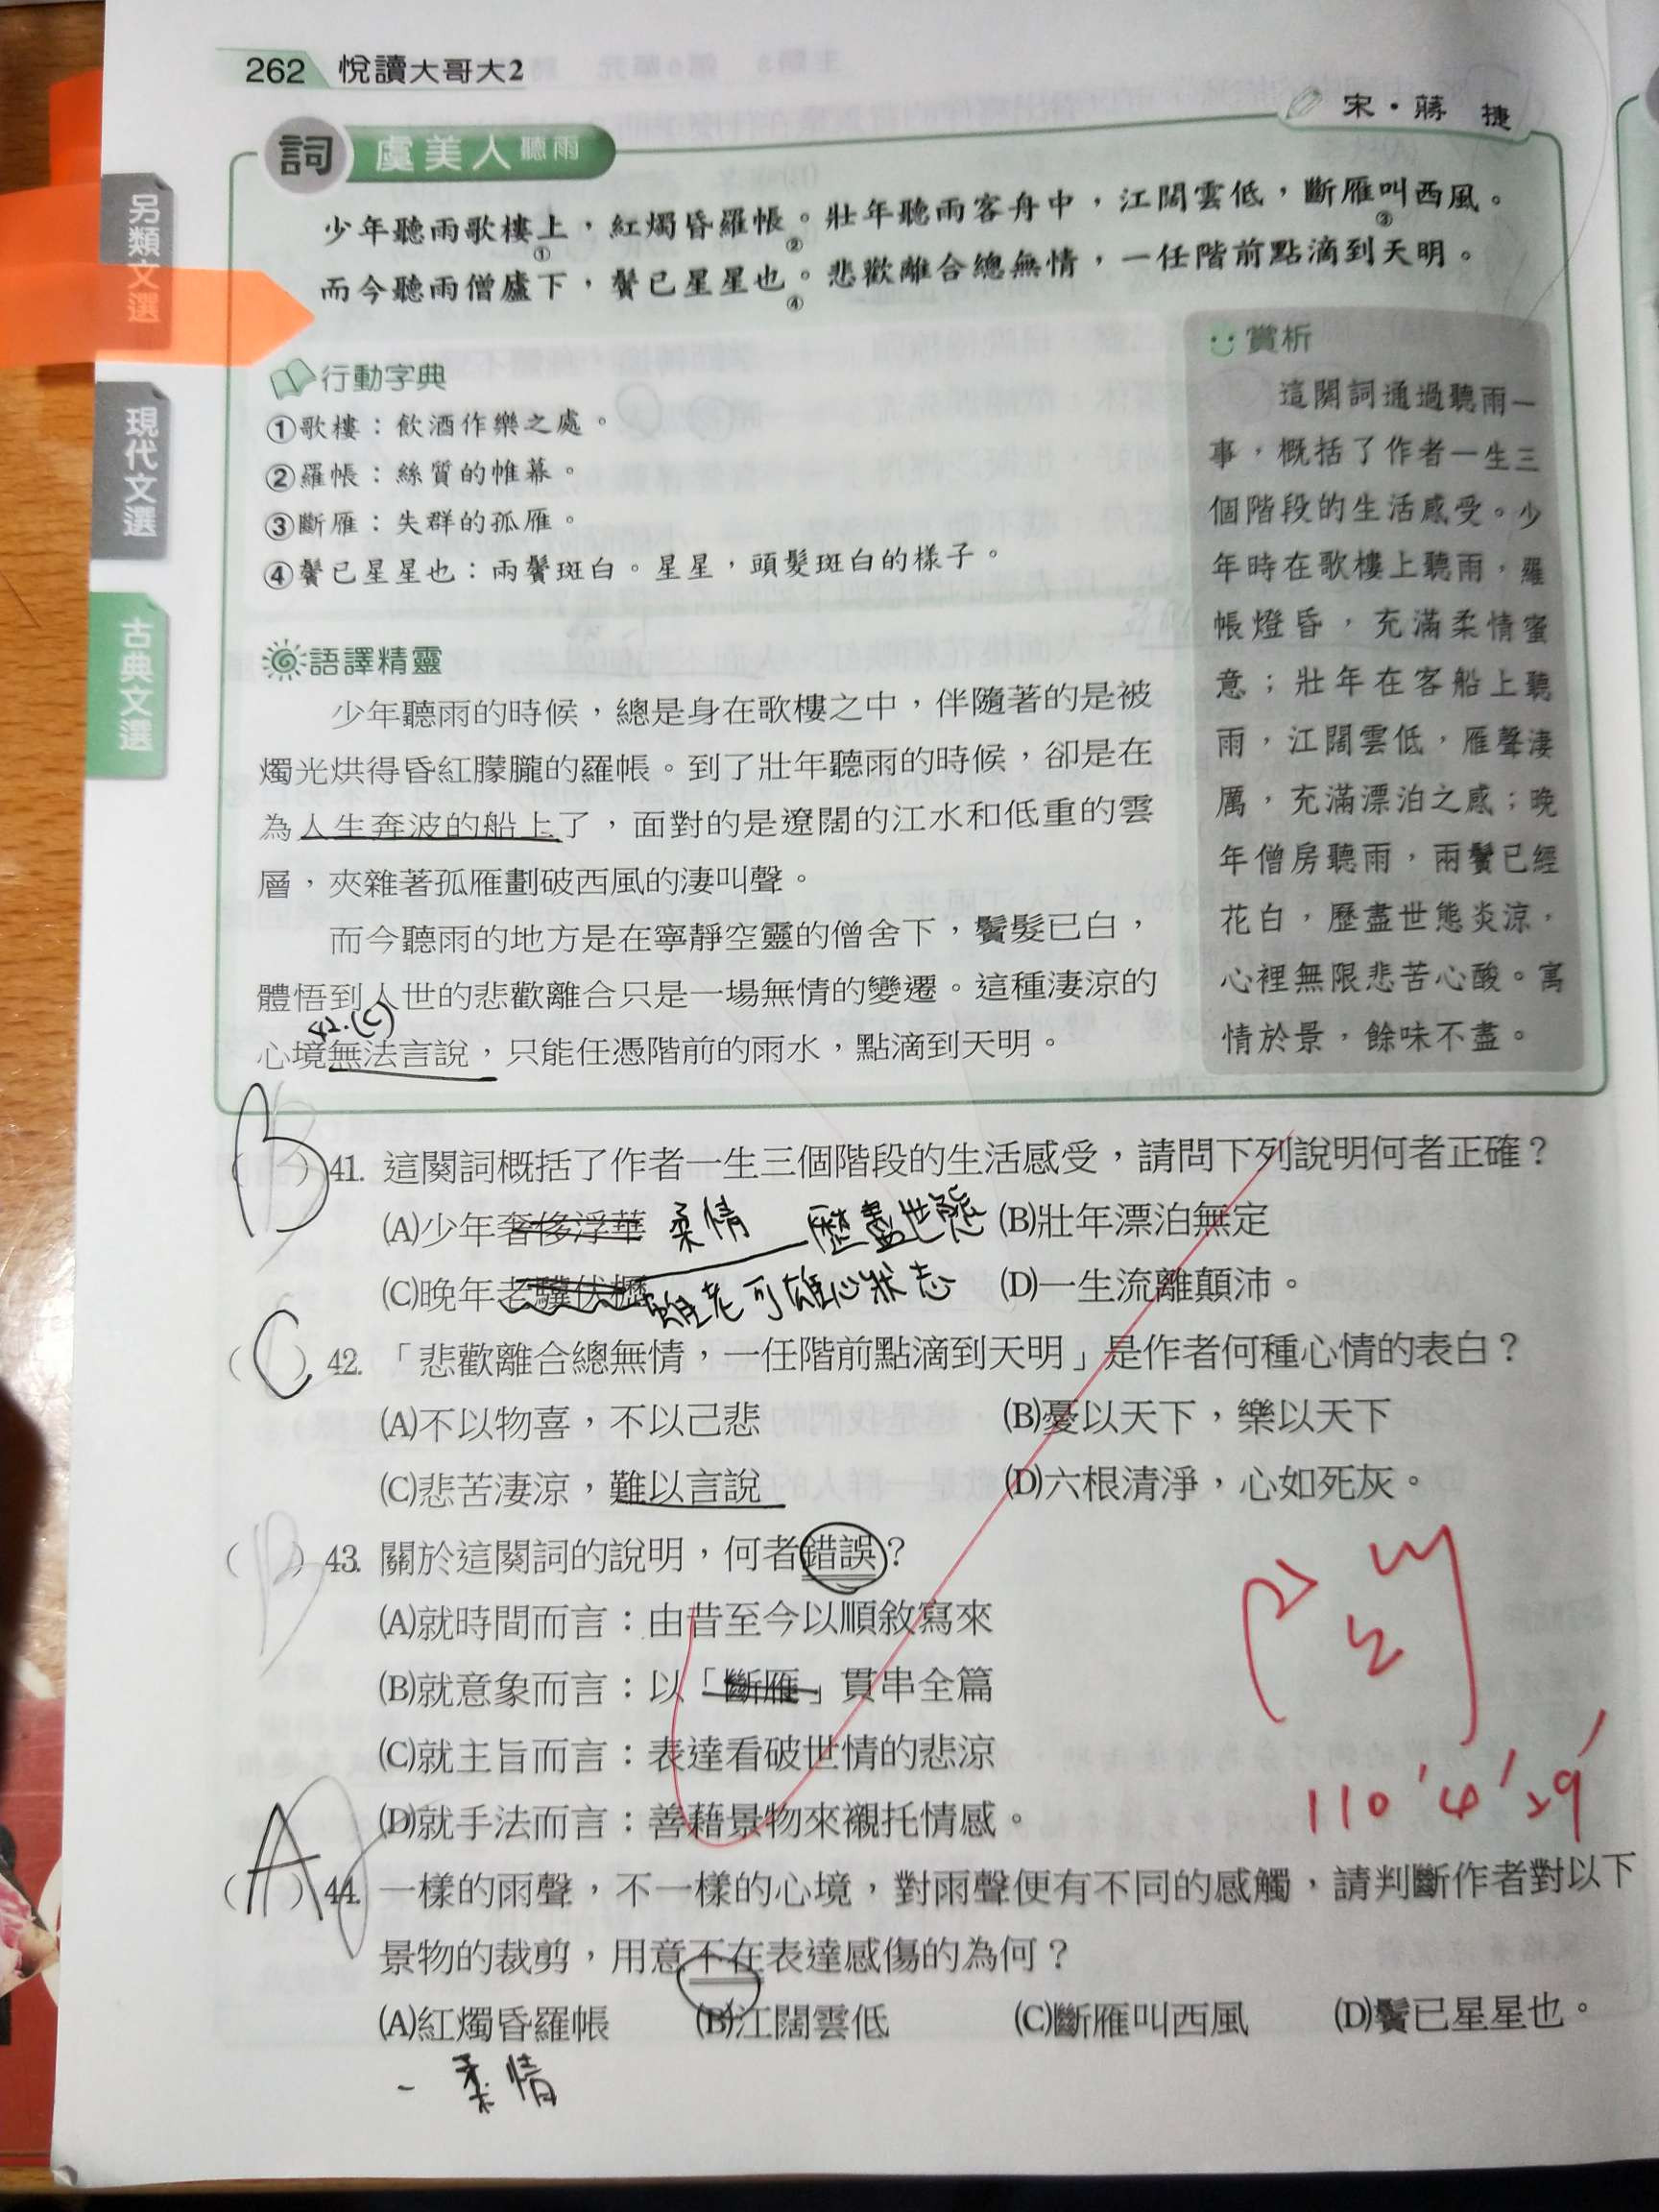 262 悅讀大哥大2
宋・蔣 捷
詞 虞美人 聽雨
少年聽雨歌樓上，紅燭昏羅帳。壯年聽雨客舟中，江闊雲低，斷雁叫西風。
① ② ③
而今聽雨僧廬下，鬢已星星也。悲歡離合總無情，一任階前點滴到天明。
④
另類文選
現代文選
古典文選
行動字典
①歌樓：飲酒作樂之處。
②羅帳：絲質的帷幕。
③斷雁：失群的孤雁。
④鬢已星星也：兩鬢斑白。星星，頭髮斑白的樣子。
語譯精靈
少年聽雨的時候，總是身在歌樓之中，伴隨著的是被
燭光烘得昏紅朦朧的羅帳。到了壯年聽雨的時候，卻是在
為人生奔波的船上了，面對的是遼闊的江水和低重的雲
層，夾雜著孤雁劃破西風的淒叫聲。
而今聽雨的地方是在寧靜空靈的僧舍下，鬢髮已白，
體悟到人世的悲歡離合只是一場無情的變遷。這種淒涼的
42.(C)
心境無法言說，只能任憑階前的雨水，點滴到天明。
賞析
這闋詞通過聽雨一
事，概括了作者一生三
個階段的生活感受。少
年時在歌樓上聽雨，羅
帳燈昏，充滿柔情蜜
意；壯年在客船上聽
雨，江闊雲低，雁聲淒
厲，充滿漂泊之感；晚
年僧房聽雨，兩鬢已經
花白，歷盡世態炎涼，
心裡無限悲苦心酸。寓
情於景，餘味不盡。
(B) 41. 這闋詞概括了作者一生三個階段的生活感受，請問下列說明何者正確？
(A)少年奢侈浮華 柔情 歷盡世態 (B)壯年漂泊無定
(C)晚年老驥伏櫪 雖老可雄心狀志 (D)一生流離顛沛。
(C) 42. 「悲歡離合總無情，一任階前點滴到天明」是作者何種心情的表白？
(A)不以物喜，不以己悲 (B)憂以天下，樂以天下
(C)悲苦淒涼，難以言說 (D)六根清淨，心如死灰。
(B) 43. 關於這闋詞的說明，何者錯誤？
(A)就時間而言：由昔至今以順敘寫來
(B)就意象而言：以「斷雁」貫串全篇
(C)就主旨而言：表達看破世情的悲涼
(D)就手法而言：善藉景物來襯托情感。
110'4'29'
(A) 44. 一樣的雨聲，不一樣的心境，對雨聲便有不同的感觸，請判斷作者對以下
景物的裁剪，用意不在表達感傷的為何？
(A)紅燭昏羅帳 (B)江闊雲低 (C)斷雁叫西風 (D)鬢已星星也。
- 柔情